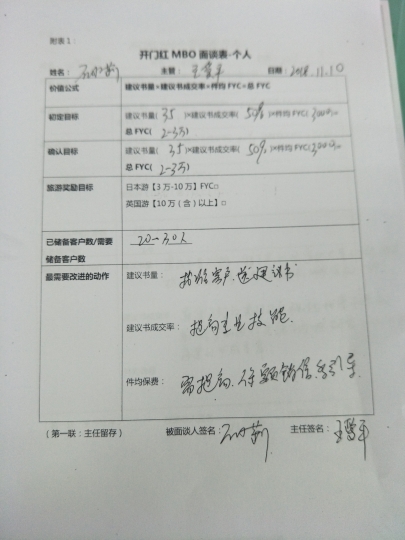 附表1：
开门红 MBO 面谈表-个人
姓名： 主管： 日期：2018.11.10
价值公式 建议书量×建议书成交率×件均 FYC=总 FYC
初定目标 建议书量( 35 )×建议书成交率( 50% )×件均 FYC(
总 FYC( 2-3万 )
确认目标 建议书量( 35 )×建议书成交率( 50% )×件均 FYC(
总 FYC( 2-3万 )
旅游奖励目标 日本游【3 万-10 万】FYC□
英国游【10 万（含）以上】□
已储备客户数/需要储备客户数 20-30人
最需要改进的动作 建议书量： 客户 建议书
建议书成交率： 提高专业技能
件均保费： 需提高
（第一联：主任留存） 被面谈人签名： 主任签名：